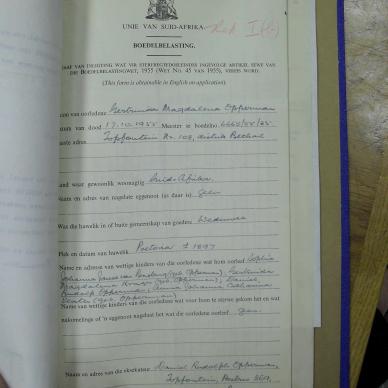 UNIE VAN SUID-AFRIKA.
BOEDELBELASTING.
VAN INLIGTING WAT VIR STERFGEVALLE INGEVOLGE ARTIKEL SEWE VAN
DIE BOEDELBELASTINGWET, 1955 (WET NO. 45 VAN 1955), VEREIS WORD.
(This form is obtainable in English on application).
van oorledene Gertruida Magdalena Opperman
van dood 17.10.1955 Meester se boedelno 6665/55
adres Zopfontein No. 108, distrik Bethal
Land waar gewoonlik woonagtig Suid-Afrika
en adres van nagelate eggenoot (as daar is) geen
Was die huwelik in of buite gemeenskap van goedere Weduwee
Plek en datum van huwelik Pretoria ± 1897
Name en adresse van wettige kinders van die oorledene wat hom oorleef Sophia
Johanna (geb. Opperman), Gertruida
Magdalena (geb. Opperman), Daniel
Rudolph Opperman, Anna Johanna Catharina
(geb. Opperman)
Name van wettige kinders van die oorledene wat voor hom te sterwe gekom het en wat
nakomelinge of 'n eggenoot nagelaat het wat die oorledene oorleef geen
Naam en adres van die eksekuteur Daniel Rudolph Opperman,
Zopfontein, Posbus